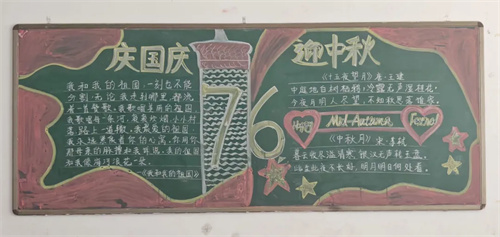 庆国庆
我和我的祖国,一刻也不能
分割,无论我走到哪里,都流
出一首赞歌。我歌唱每一
我歌唱每一条河,袅袅炊烟,小小村
落,路上一道辙,我最爱的祖国,
我永远紧依着你的心窝,你用你
那母亲的脉搏和我诉说,我的祖国
和我,像海和浪花一朵。
—《我和我的祖国》
76
迎中秋
《十五夜望月》唐·王建
中庭地白树栖鸦,冷露无声湿桂花。
今夜月明人尽望,不知秋思落谁家。
Happy Mid-Autumn Festival
《中秋月》宋·苏轼
暮云收尽溢清寒,银汉无声转玉盘。
此生此夜不长好,明月明年何处看。